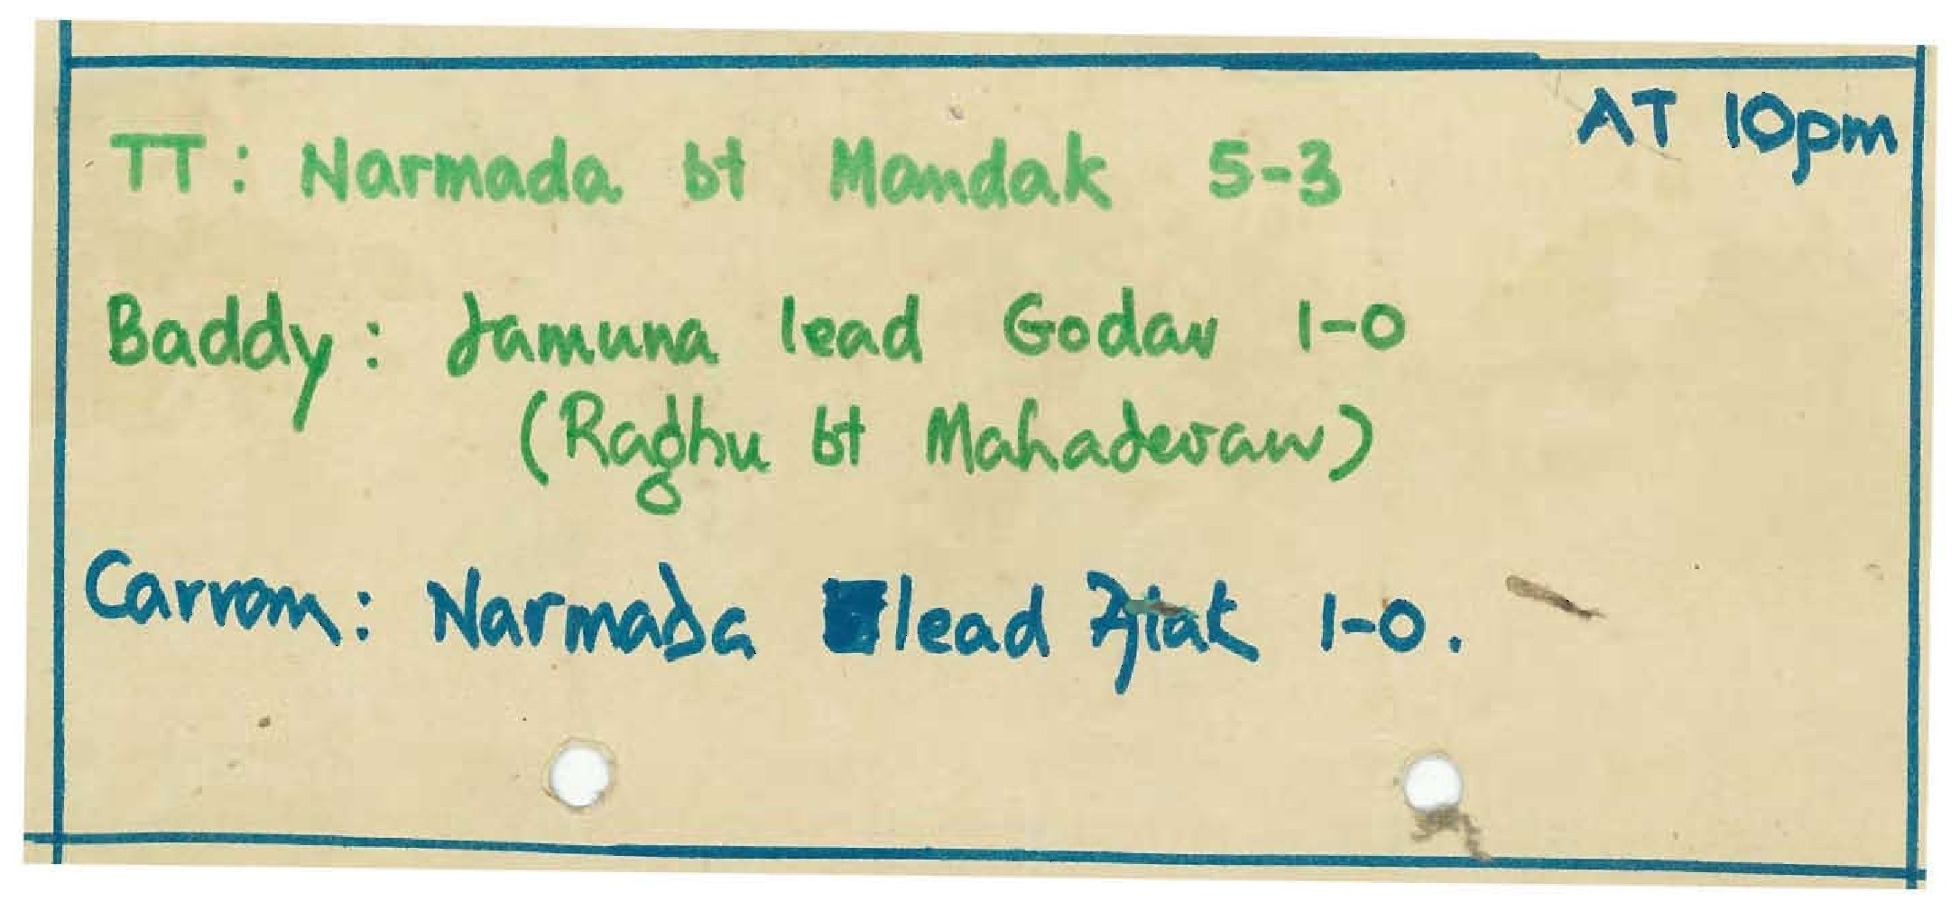 AT 10pm
TT: Narmada bt Mandak 5-3
Baddy: Jamuna lead Godav 1-0
(Raghu bt Mahadevan)
Carrom: Narmada lead 1-0.